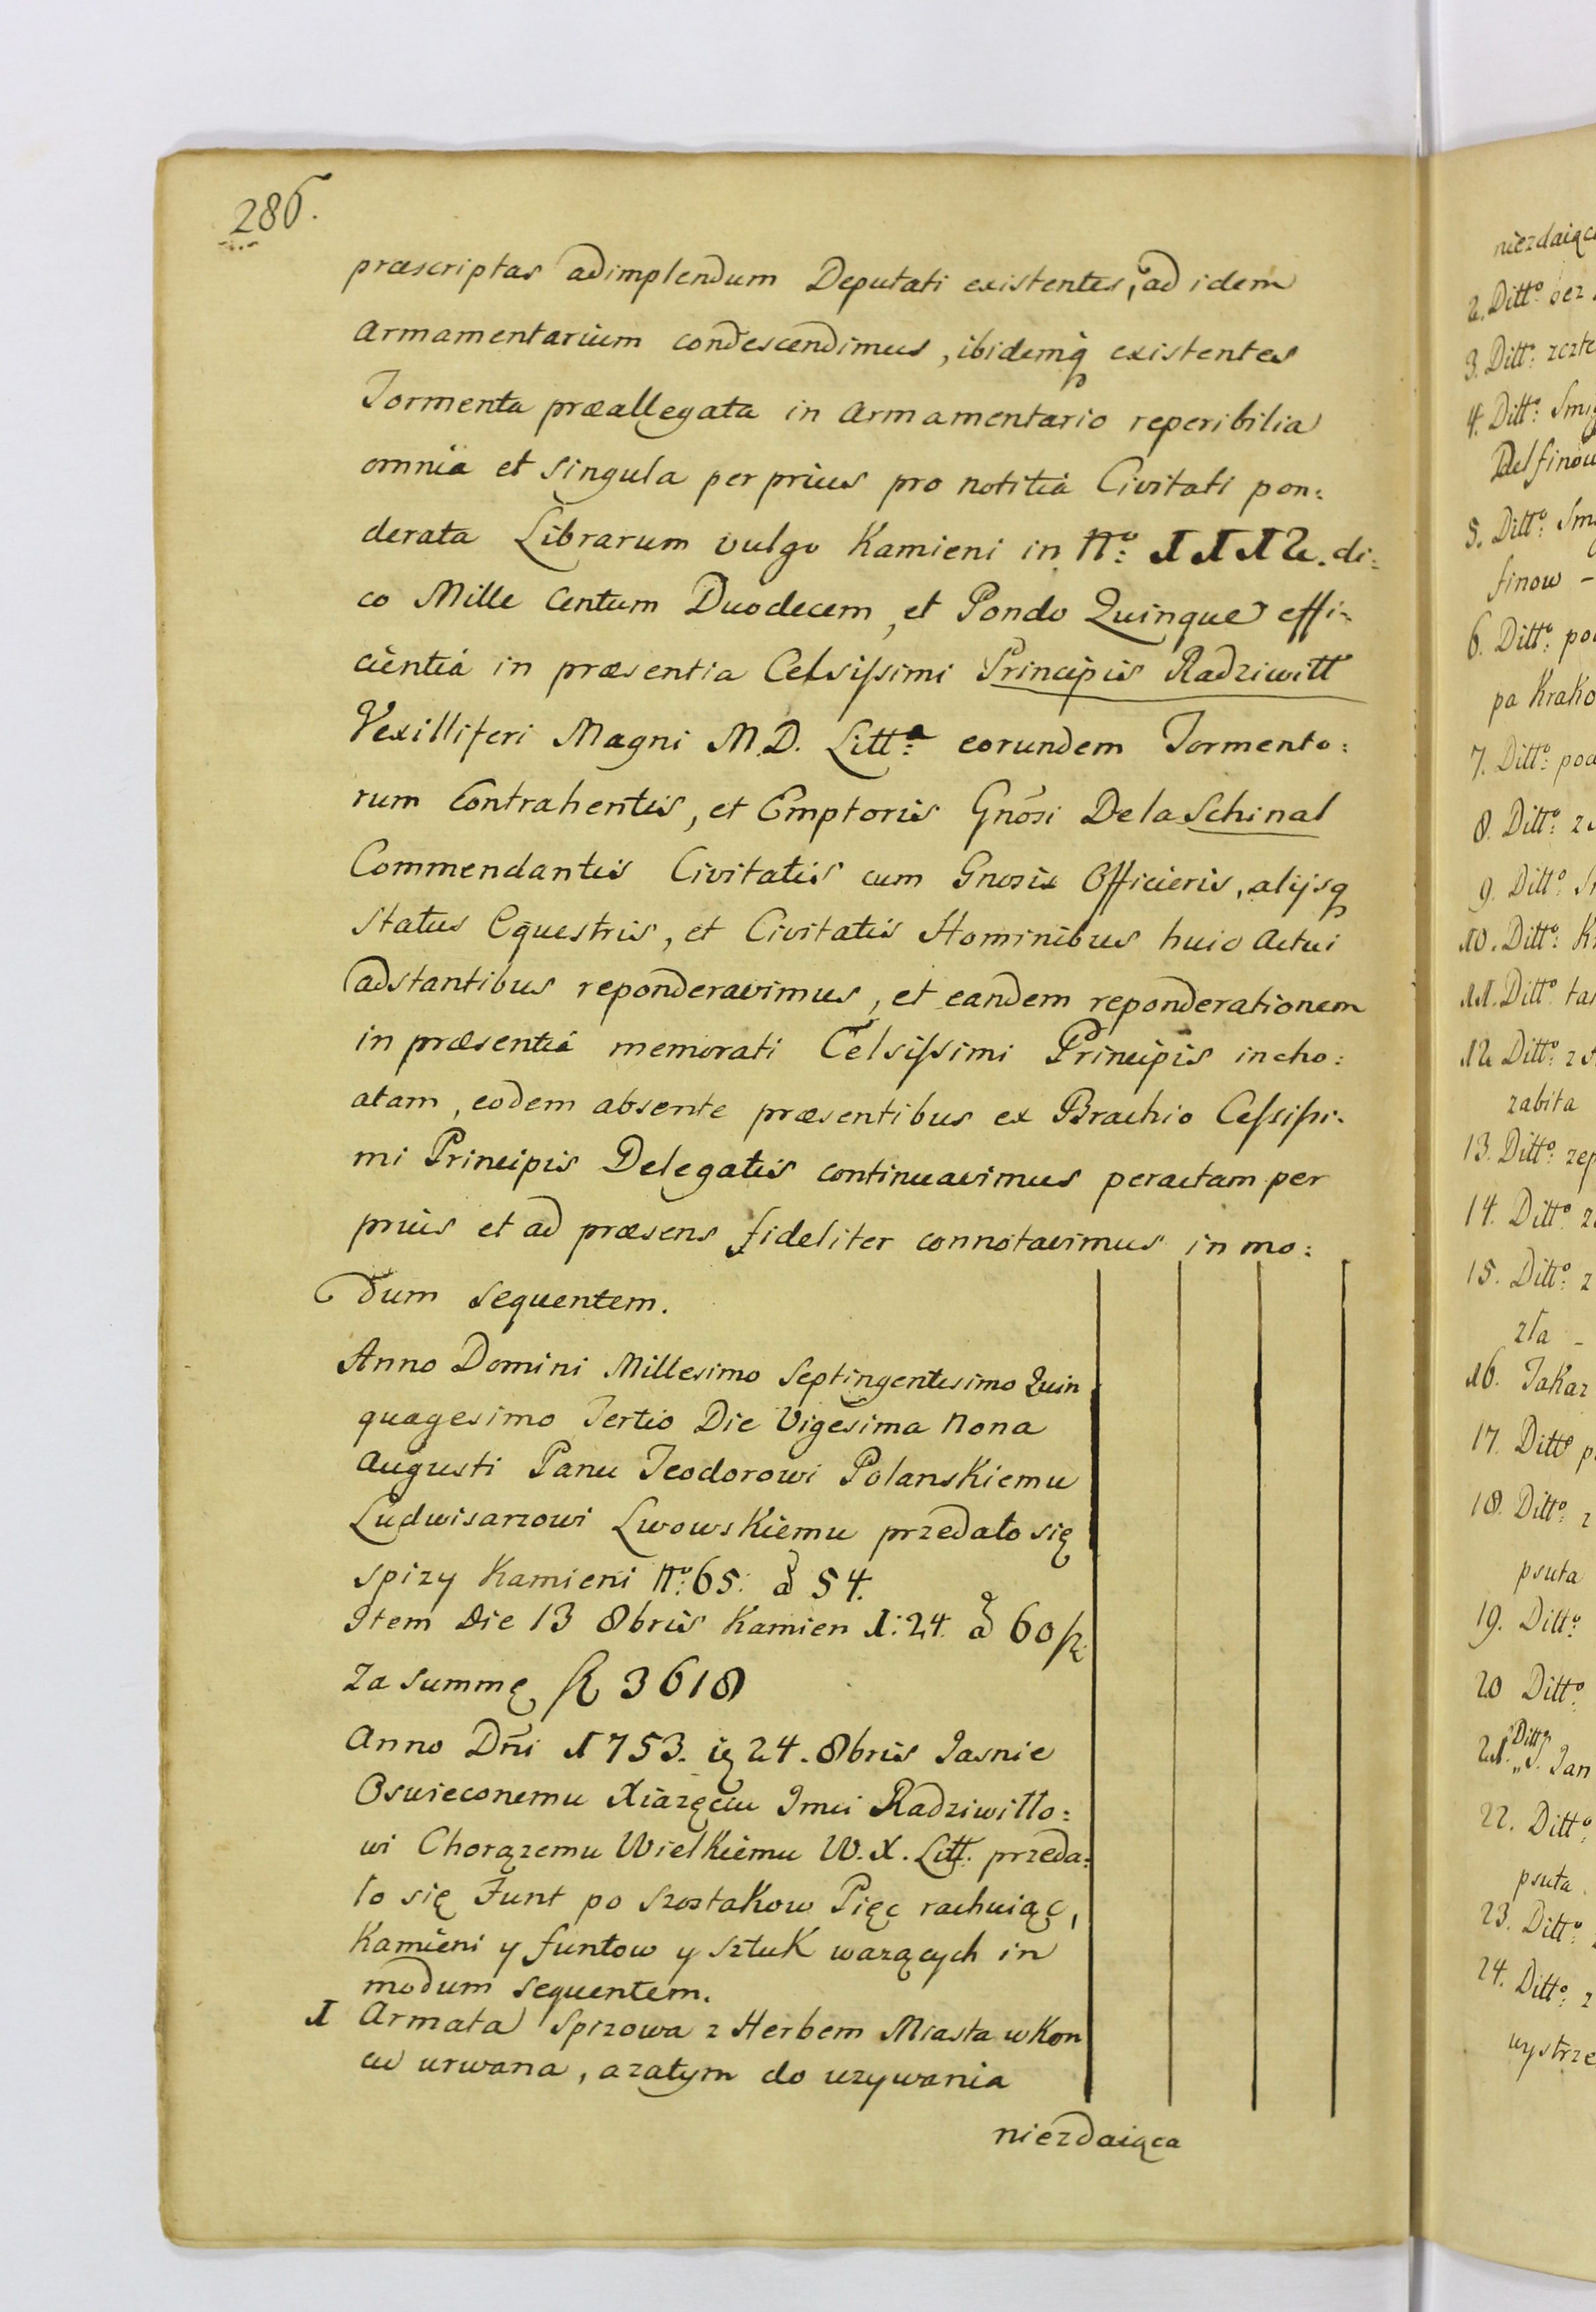 286.
præscriptas adimplendum Deputati existentes, ad idem
Armamentarium condescendimus, ibidemq existentes
Tormenta præallegata in Armamentario reperibilia
omnia et singula per prius pro notitia Civitati pon:
derata Librarum vulgo Kamieni in No: 1112. di:
co Mille Centum Duodecem, et Pondo Quinque effi:
cientia in præsentia Celsissimi Principis Radziwiłł
Vexilliferi Magni M.D. Litta: eorundem Tormento:
rum Contrahentis, et Emptoris Gnosi Dela Schinal
Commendantis Civitatis cum Gnosis Officieris, alijsq
Status Equestris, et Civitatis Hominibus huic Actui
adstantibus reponderavimus, et eandem reponderationem
in præsentia memorati Celsissimi Principis incho:
atam, eodem absente præsentibus ex Brachio Celsissi:
mi Principis Delegatis continuavimus peractam per
prius et ad præsens fideliter connotavimus in mo:
dum sequentem.
Anno Domini Millesimo Septingentesimo Quin
quagesimo Tertio Die Vigesima Nona
Augusti Panu Teodorowi Polanskiemu
Ludwisarzowi Lwowskiemu przedało się
spizy Kamieni No: 65: à 54.
Item Die 13 8bris Kamien 1: 24. à 60 f.
Za summę f 3618
Anno Dni 1753. 24. 8bris Jasnie
Oswieconemu Xiazęciu Jmci Radziwiłło:
wi Chorązemu Wielkiemu W.X. Litt. przeda:
ło się Funt po Szostakow Pięc rachuiąc,
Kamieni y funtow y sztuk wazących in
modum sequentem.
1 Armata Spizowa z Herbem Miasta w Kon
cu urwana, azatym do uzywania
niezdaiąca
niezdaiąca
2. Ditto: bez
3. Ditto:
4. Ditto:
Delfinow
5. Ditto:
finow -
6. Ditto:
pa Krako
7. Ditto:
8. Ditto:
9. Ditto:
10. Ditto:
11. Ditto:
12 Ditto:
zabita
13. Ditto:
14. Ditto:
15. Ditto:
zła -
16. Takaz
17. Ditto
18. Ditto:
psuta
19. Ditto:
20 Ditto:
21. Ditto: S. Jan
22. Ditto:
psuta
23. Ditto:
24. Ditto:
wystrze